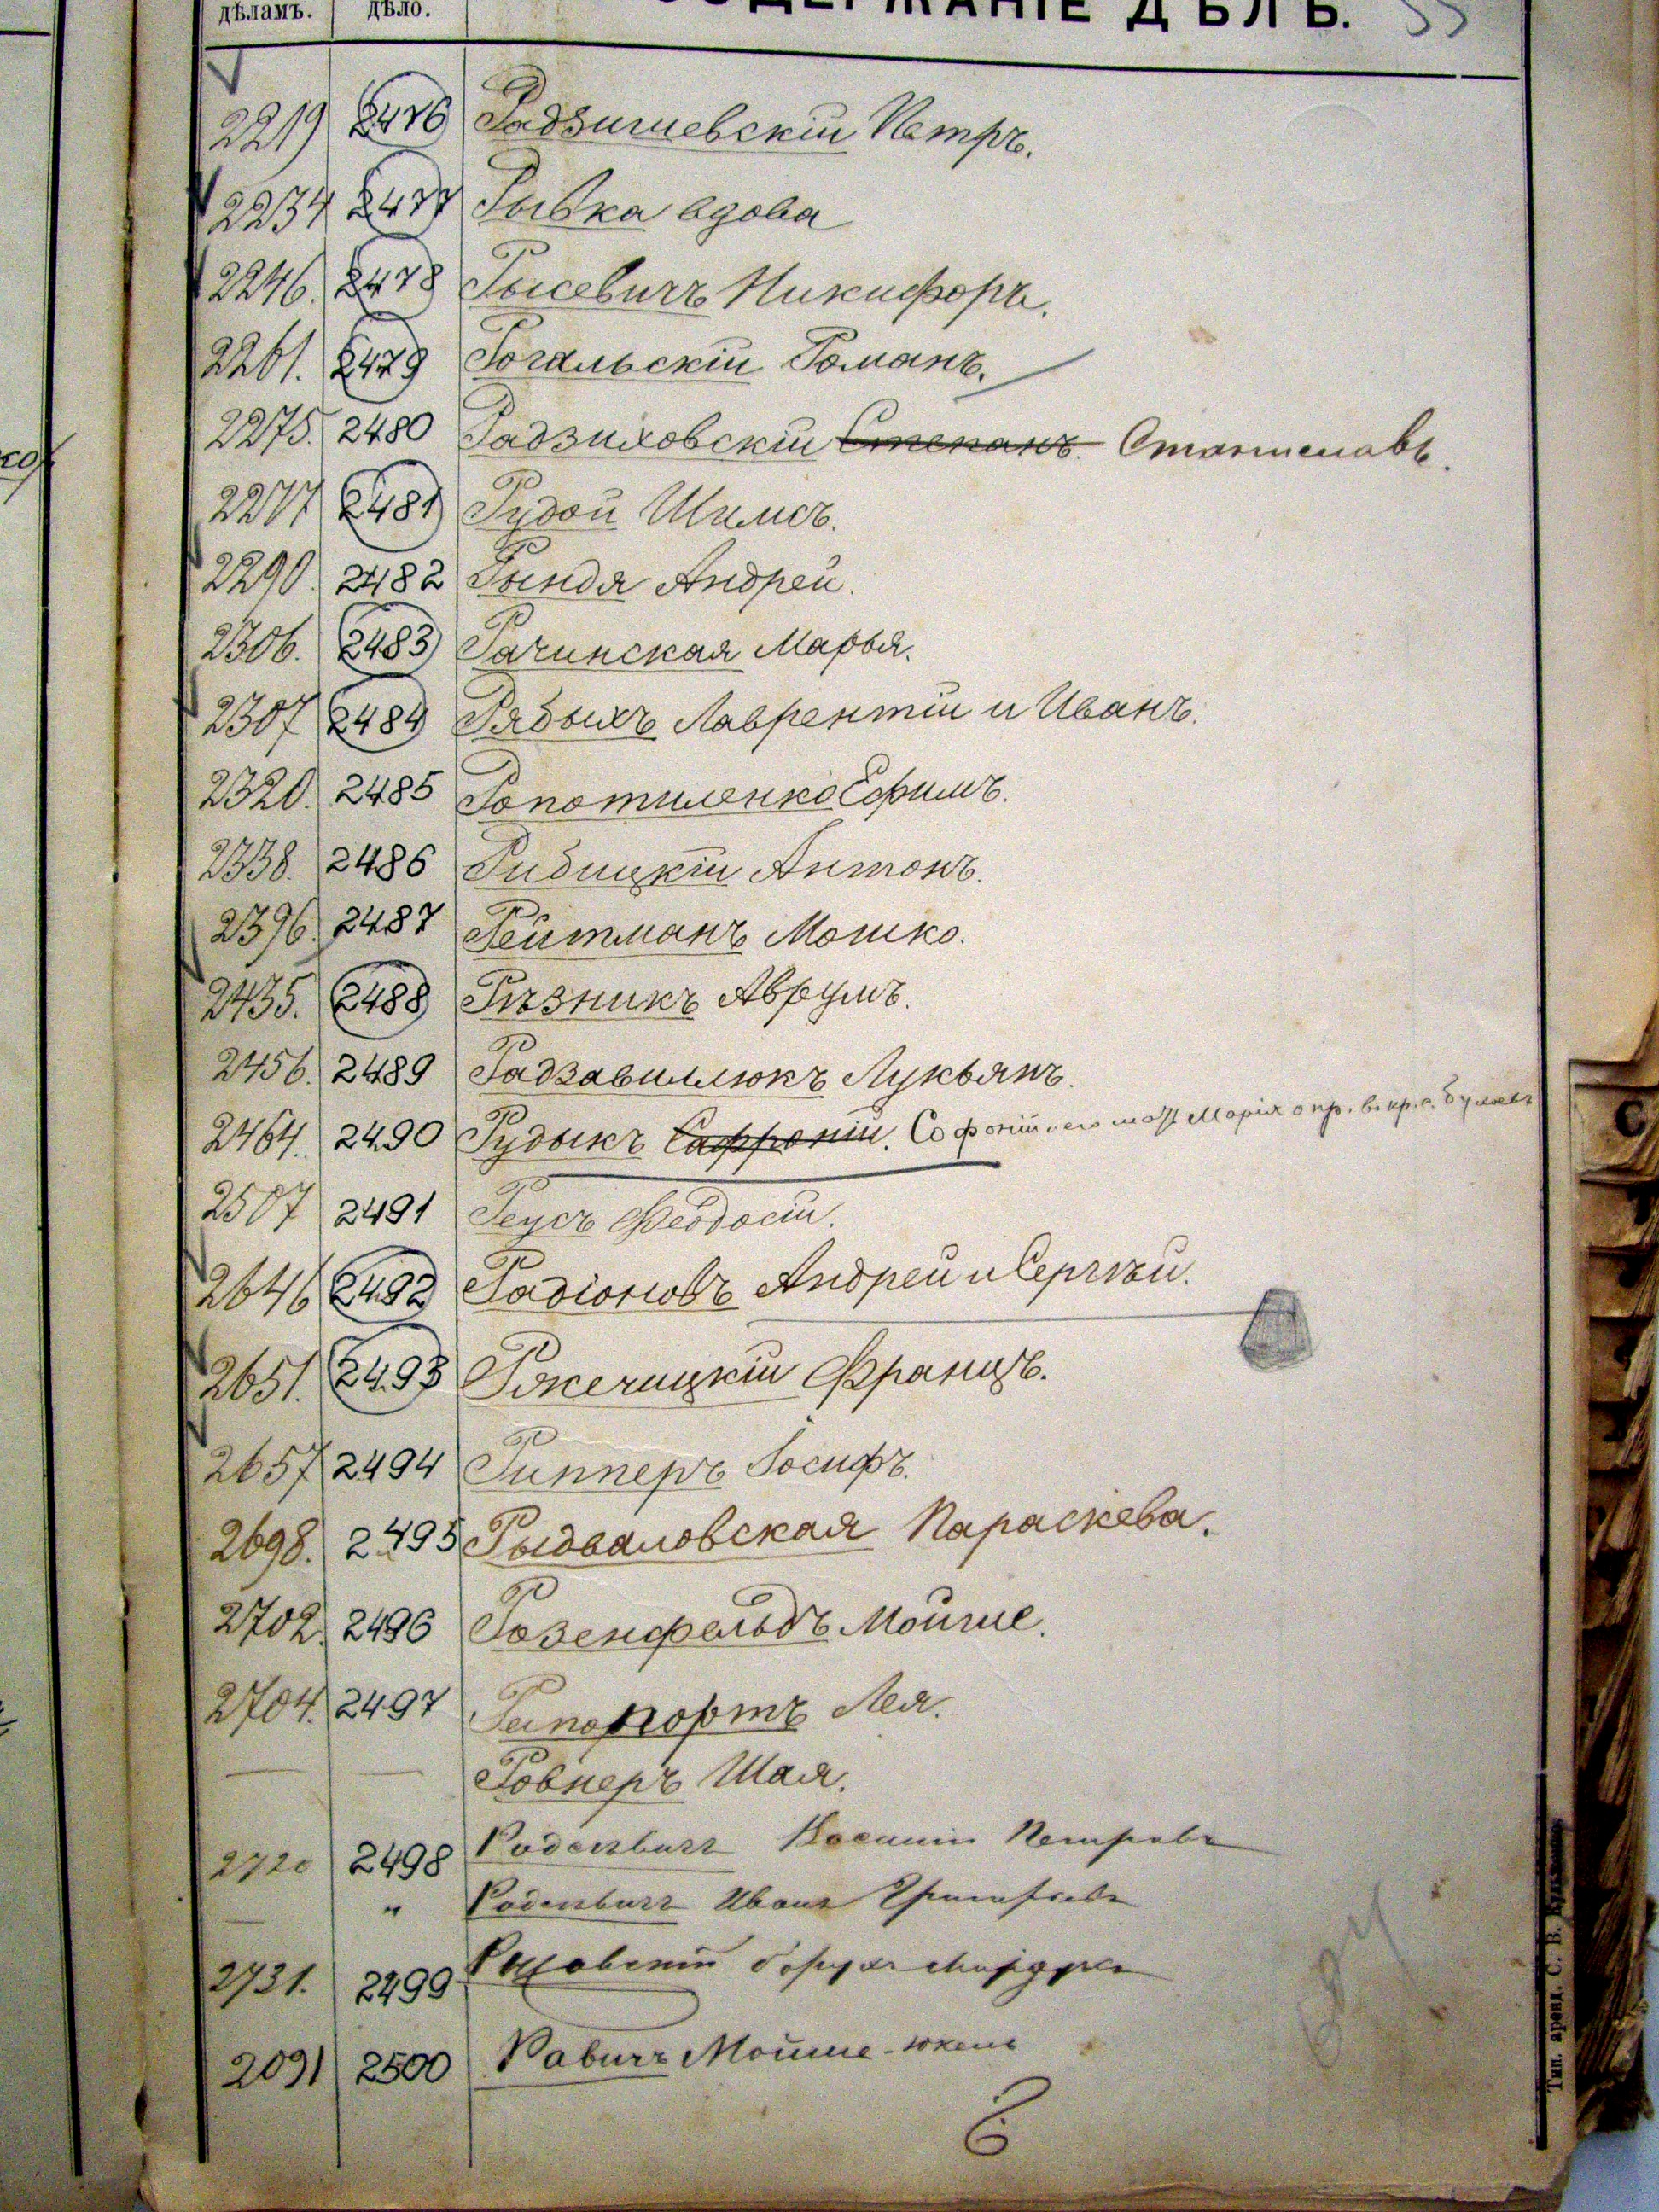 дѣламъ. дѣло. СОДЕРЖАНІЕ ДѢЛЪ. 55
2219 2476 Радзишевскій Петръ.
2234 2477 Рывка вдова
2246. 2478 Рысевичъ Никифоръ.
2261. 2479 Рогальскій Романъ.
2275. 2480 Радзиховскій Степанъ. Станиславъ.
2277 2481 Рудой Шимсъ.
2290. 2482 Рындя Андрей.
2306. 2483 Рачинская Марья.
2307 2484 Рябыхъ Лаврентій и Иванъ.
2320. 2485 Ропотиленко Ефимъ.
2338. 2486 Рибицкій Антонъ.
2396. 2487 Рейтманъ Мошко.
2435. 2488 Рѣзникъ Аврумъ.
2456. 2489 Радзавиллюкъ Лукьянъ.
2464. 2490 Рудыкъ Сафроній. Софоній и его мать Марія о пр. в. кр. с.
2507 2491 Реусъ Феодосій.
2646 2492 Радіоновъ Андрей и Сергѣй.
2651. 2493 Ржечицкій Францъ.
2657 2494 Рипперъ Іосифъ.
2698. 2495 Рыдваловская Параскева.
2702. 2496 Розенфельдъ Мойше.
2704. 2497 Рапопортъ Лея.
— — Ровнеръ Шая.
2720 2498 Родзевичъ Петровъ
— " Родзевичъ Иванъ Григорьевъ
2731. 2499 Борухъ
2091 2500 Равичъ Мойше-
Тип. аренд. С. В. Кульженко.
С